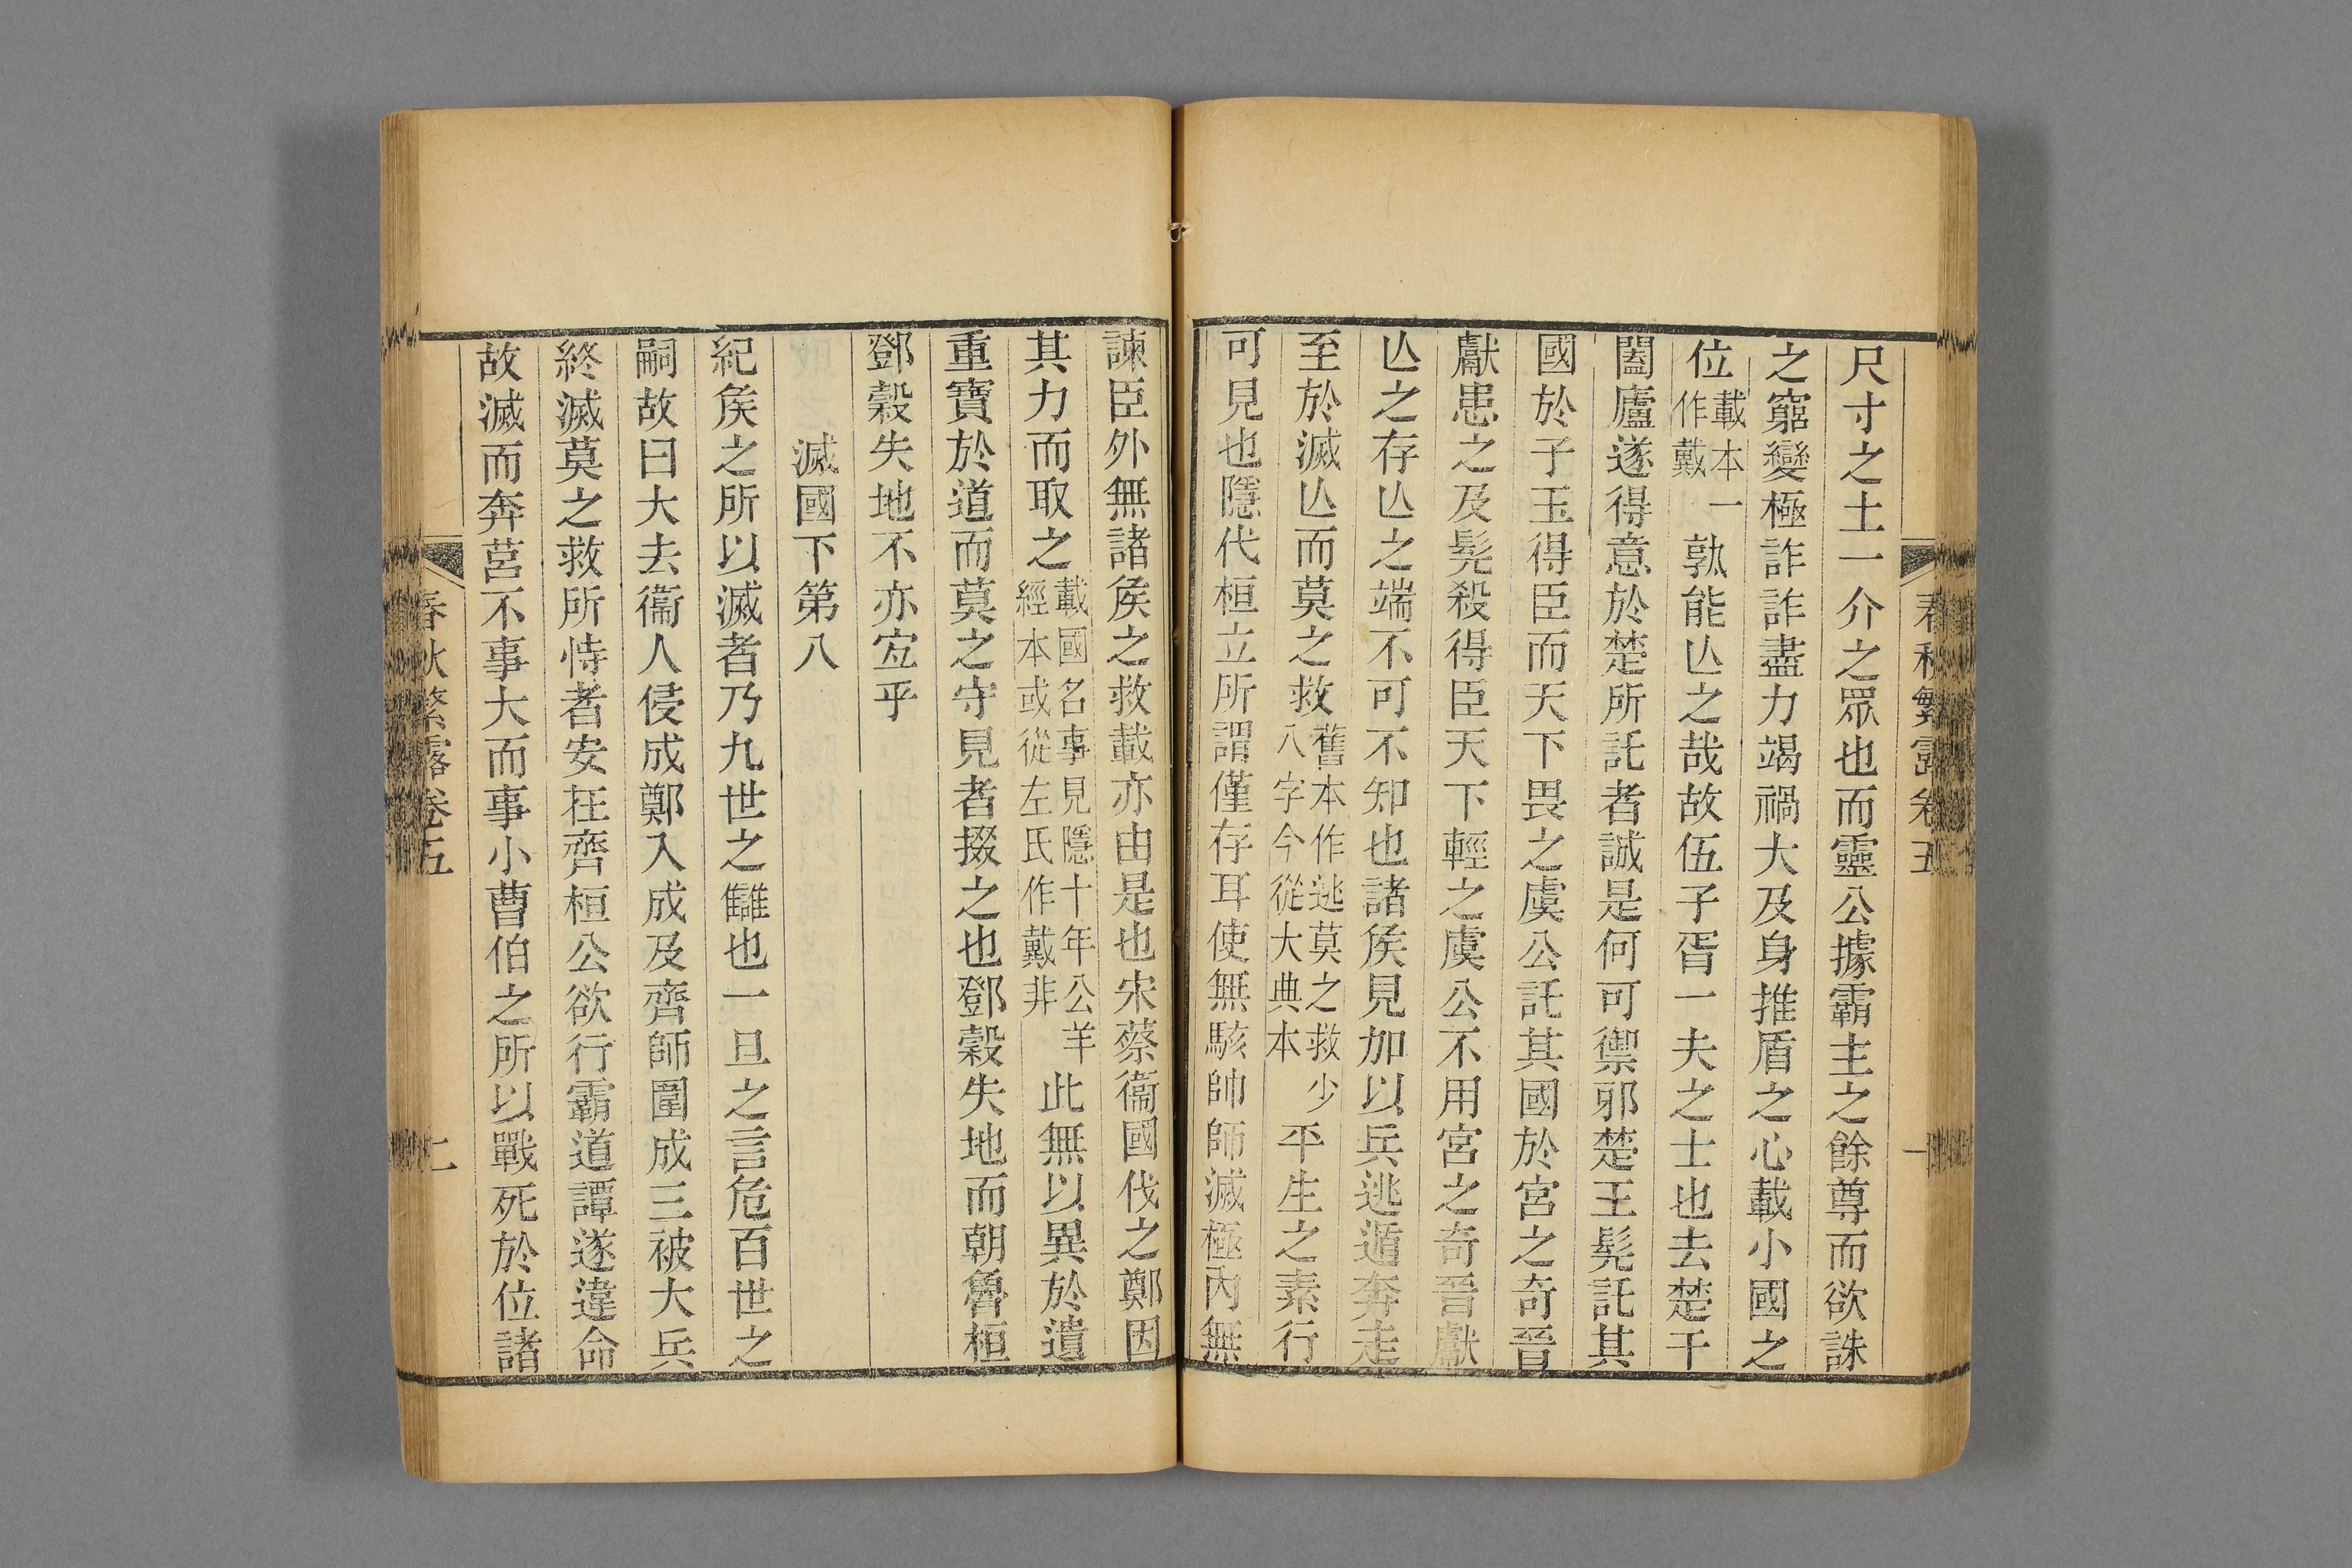 春秋繁露卷五
一
尺寸之土一介之眾也而靈公據霸主之餘尊而欲誅
之窮變極詐詐盡力竭禍大及身推盾之心載小國之
位載本一作戴孰能亾之哉故伍子胥一夫之士也去楚干
闔廬遂得意於楚所託者誠是何可禦邪楚王髡託其
國於子玉得臣而天下畏之虞公託其國於宮之奇晉
獻患之及髡殺得臣天下輕之虞公不用宮之奇晉獻
亾之存亾之端不可不知也諸矦見加以兵逃遁奔走
至於滅亾而莫之救舊本作逃莫之救少八字今從大典本平生之素行
可見也隱代桓立所謂僅存耳使無駭帥師滅極內無
諫臣外無諸矦之救載亦由是也宋蔡衞國伐之鄭因
其力而取之載國名事見隱十年公羊經本或從左氏作戴非此無以異於遺
重寶於道而莫之守見者掇之也鄧穀失地而朝魯桓
鄧穀失地不亦宐乎
滅國下第八
紀矦之所以滅者乃九世之讎也一旦之言危百世之
嗣故曰大去衞人侵成鄭入成及齊師圍成三被大兵
終滅莫之救所恃者安在齊桓公欲行霸道譚遂違命
故滅而奔莒不事大而事小曹伯之所以戰死於位諸
春秋繁露卷五